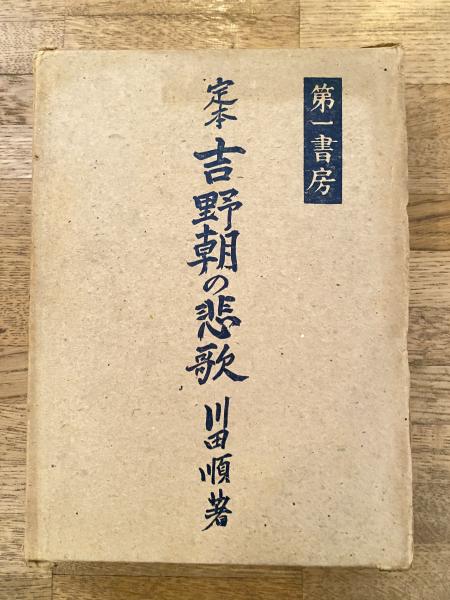 第一書房
定本 吉野朝の悲歌 川田順著